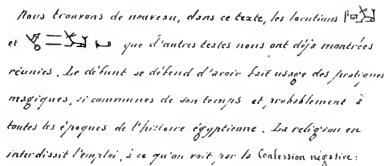 Nous trouvons de nouveau, dans ce texte, les locutions
et que d'autres textes nous ont déjà montrées
réunies. Le défunt se défend d'avoir fait usage des pratiques
magiques, si communes de son temps et probablement à
toutes les époques de l'histoire égyptienne. La religion en
interdissit l'emploi, à ce qu'on voit par la Confession négative: